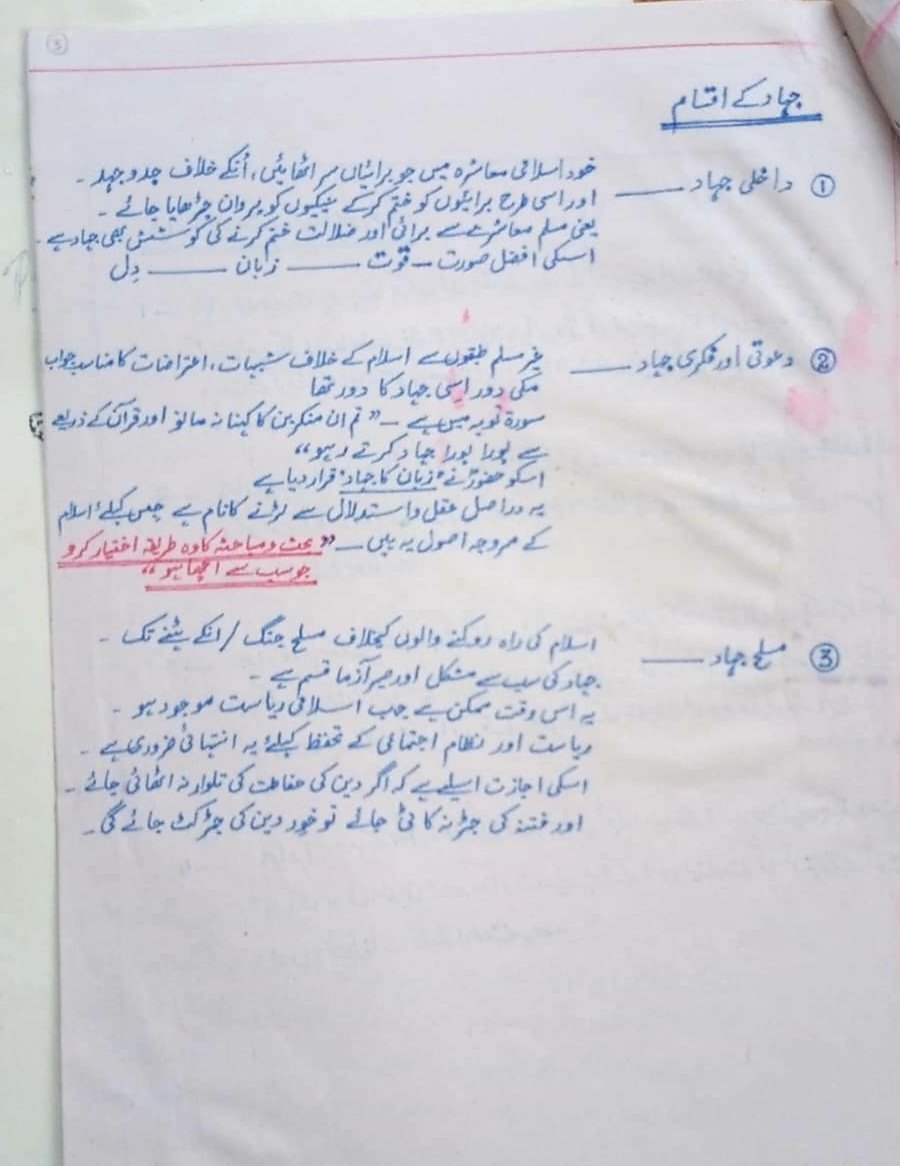 3
جہاد کے اقسام
① داخلی جہاد — خود اسلامی معاشرہ میں جو برائیاں سر اٹھائیں، اُنکے خلاف جدوجہد۔
اور اسی طرح برائیوں کو ختم کرکے نیکیوں کو پروان چڑھایا جائے۔
یعنی مسلم معاشرے سے برائی اور ضلالت ختم کرنے کی کوشش بھی جہاد ہے۔
اسکی افضل صورت — قوت — زبان — دِل
② دعوتی اور فکری جہاد — غیر مسلم طبقوں سے اسلام کے خلاف شبہات، اعتراضات کا مناسب جواب
مکی دور اسی جہاد کا دور تھا
سورۃ توبہ میں ہے — "تم ان منکرین کا کہنا نہ مانو اور قرآن کے ذریعے
سے پورا پورا جہاد کرتے رہو"
اسکو حضورؐ نے 'زبان کا جہاد' قرار دیا ہے
یہ دراصل عقل و استدلال سے لڑنے کا نام ہے جس کیلئے اسلام
کے مروجہ اصول یہ ہیں — "بحث و مباحثہ کا وہ طریقہ اختیار کرو
جو سب سے اچھا ہو"
③ مسلح جہاد — اسلام کی راہ روکنے والوں کیخلاف مسلح جنگ / انکے ہٹنے تک۔
جہاد کی سب سے مشکل اور صبر آزما قسم ہے۔
یہ اس وقت ممکن ہے جب اسلامی ریاست موجود ہو۔
ریاست اور نظام اجتماعی کے تحفظ کیلئے یہ انتہائی ضروری ہے۔
اسکی اجازت اسلیے ہے کہ اگر دین کی حفاظت کی تلوار نہ اٹھائی جائے۔
اور فتنہ کی جڑ نہ کاٹی جائے تو خود دین کی جڑ کٹ جائے گی۔